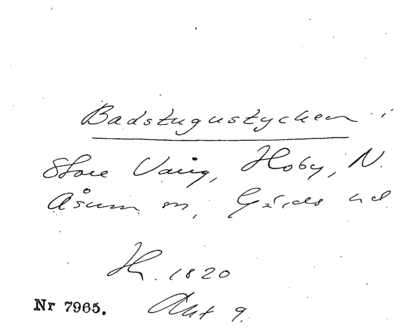 Badstugustycken i
Store Vång, Hoby, N.
Åsum sn, Gärds hd
H. 1820
Nr 7965. Akt 9.